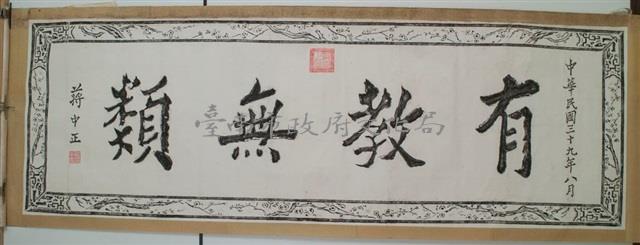 中華民國三十九年八月
有教無類
蔣中正
臺南市政府文化局